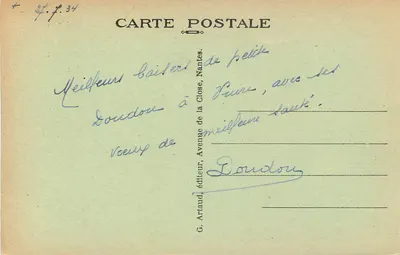 + 27.7.34
CARTE POSTALE
Meilleurs baisers de petite
Doudou à            , avec ses
vœux de meilleure santé.
Doudou
G. Artaud, éditeur, Avenue de la Close, Nantes.